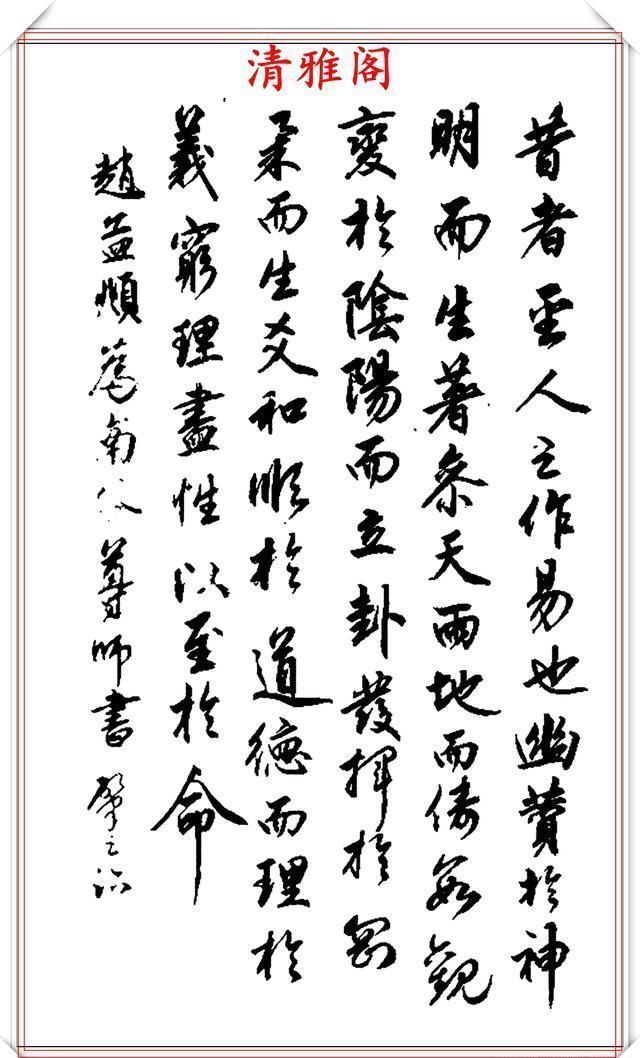 清雅阁
昔者聖人之作易也幽贊於神
明而生蓍參天兩地而倚數觀
變於陰陽而立卦發揮於剛
柔而生爻和順於道德而理於
義窮理盡性以至於命
趙孟頫為南谷尊師書